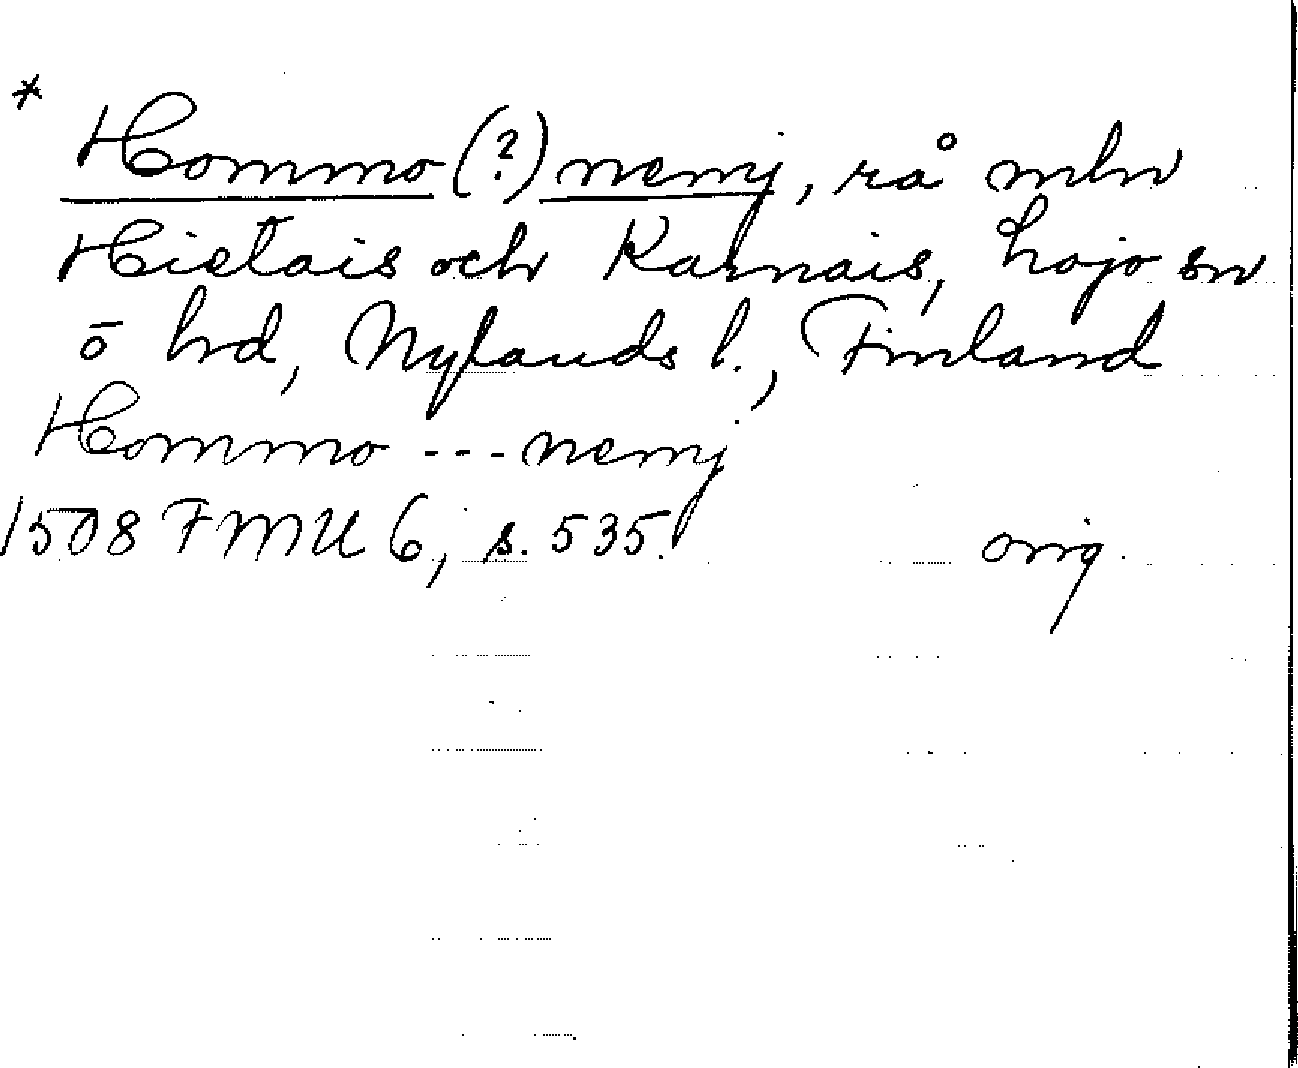 * Hommo(?)nemj, rå mln
Hietais och Karnais, Lojo sn
ō hd, Nylands l., Finland
Hommo ---nemj
1508 FMU 6, s. 535. orig.